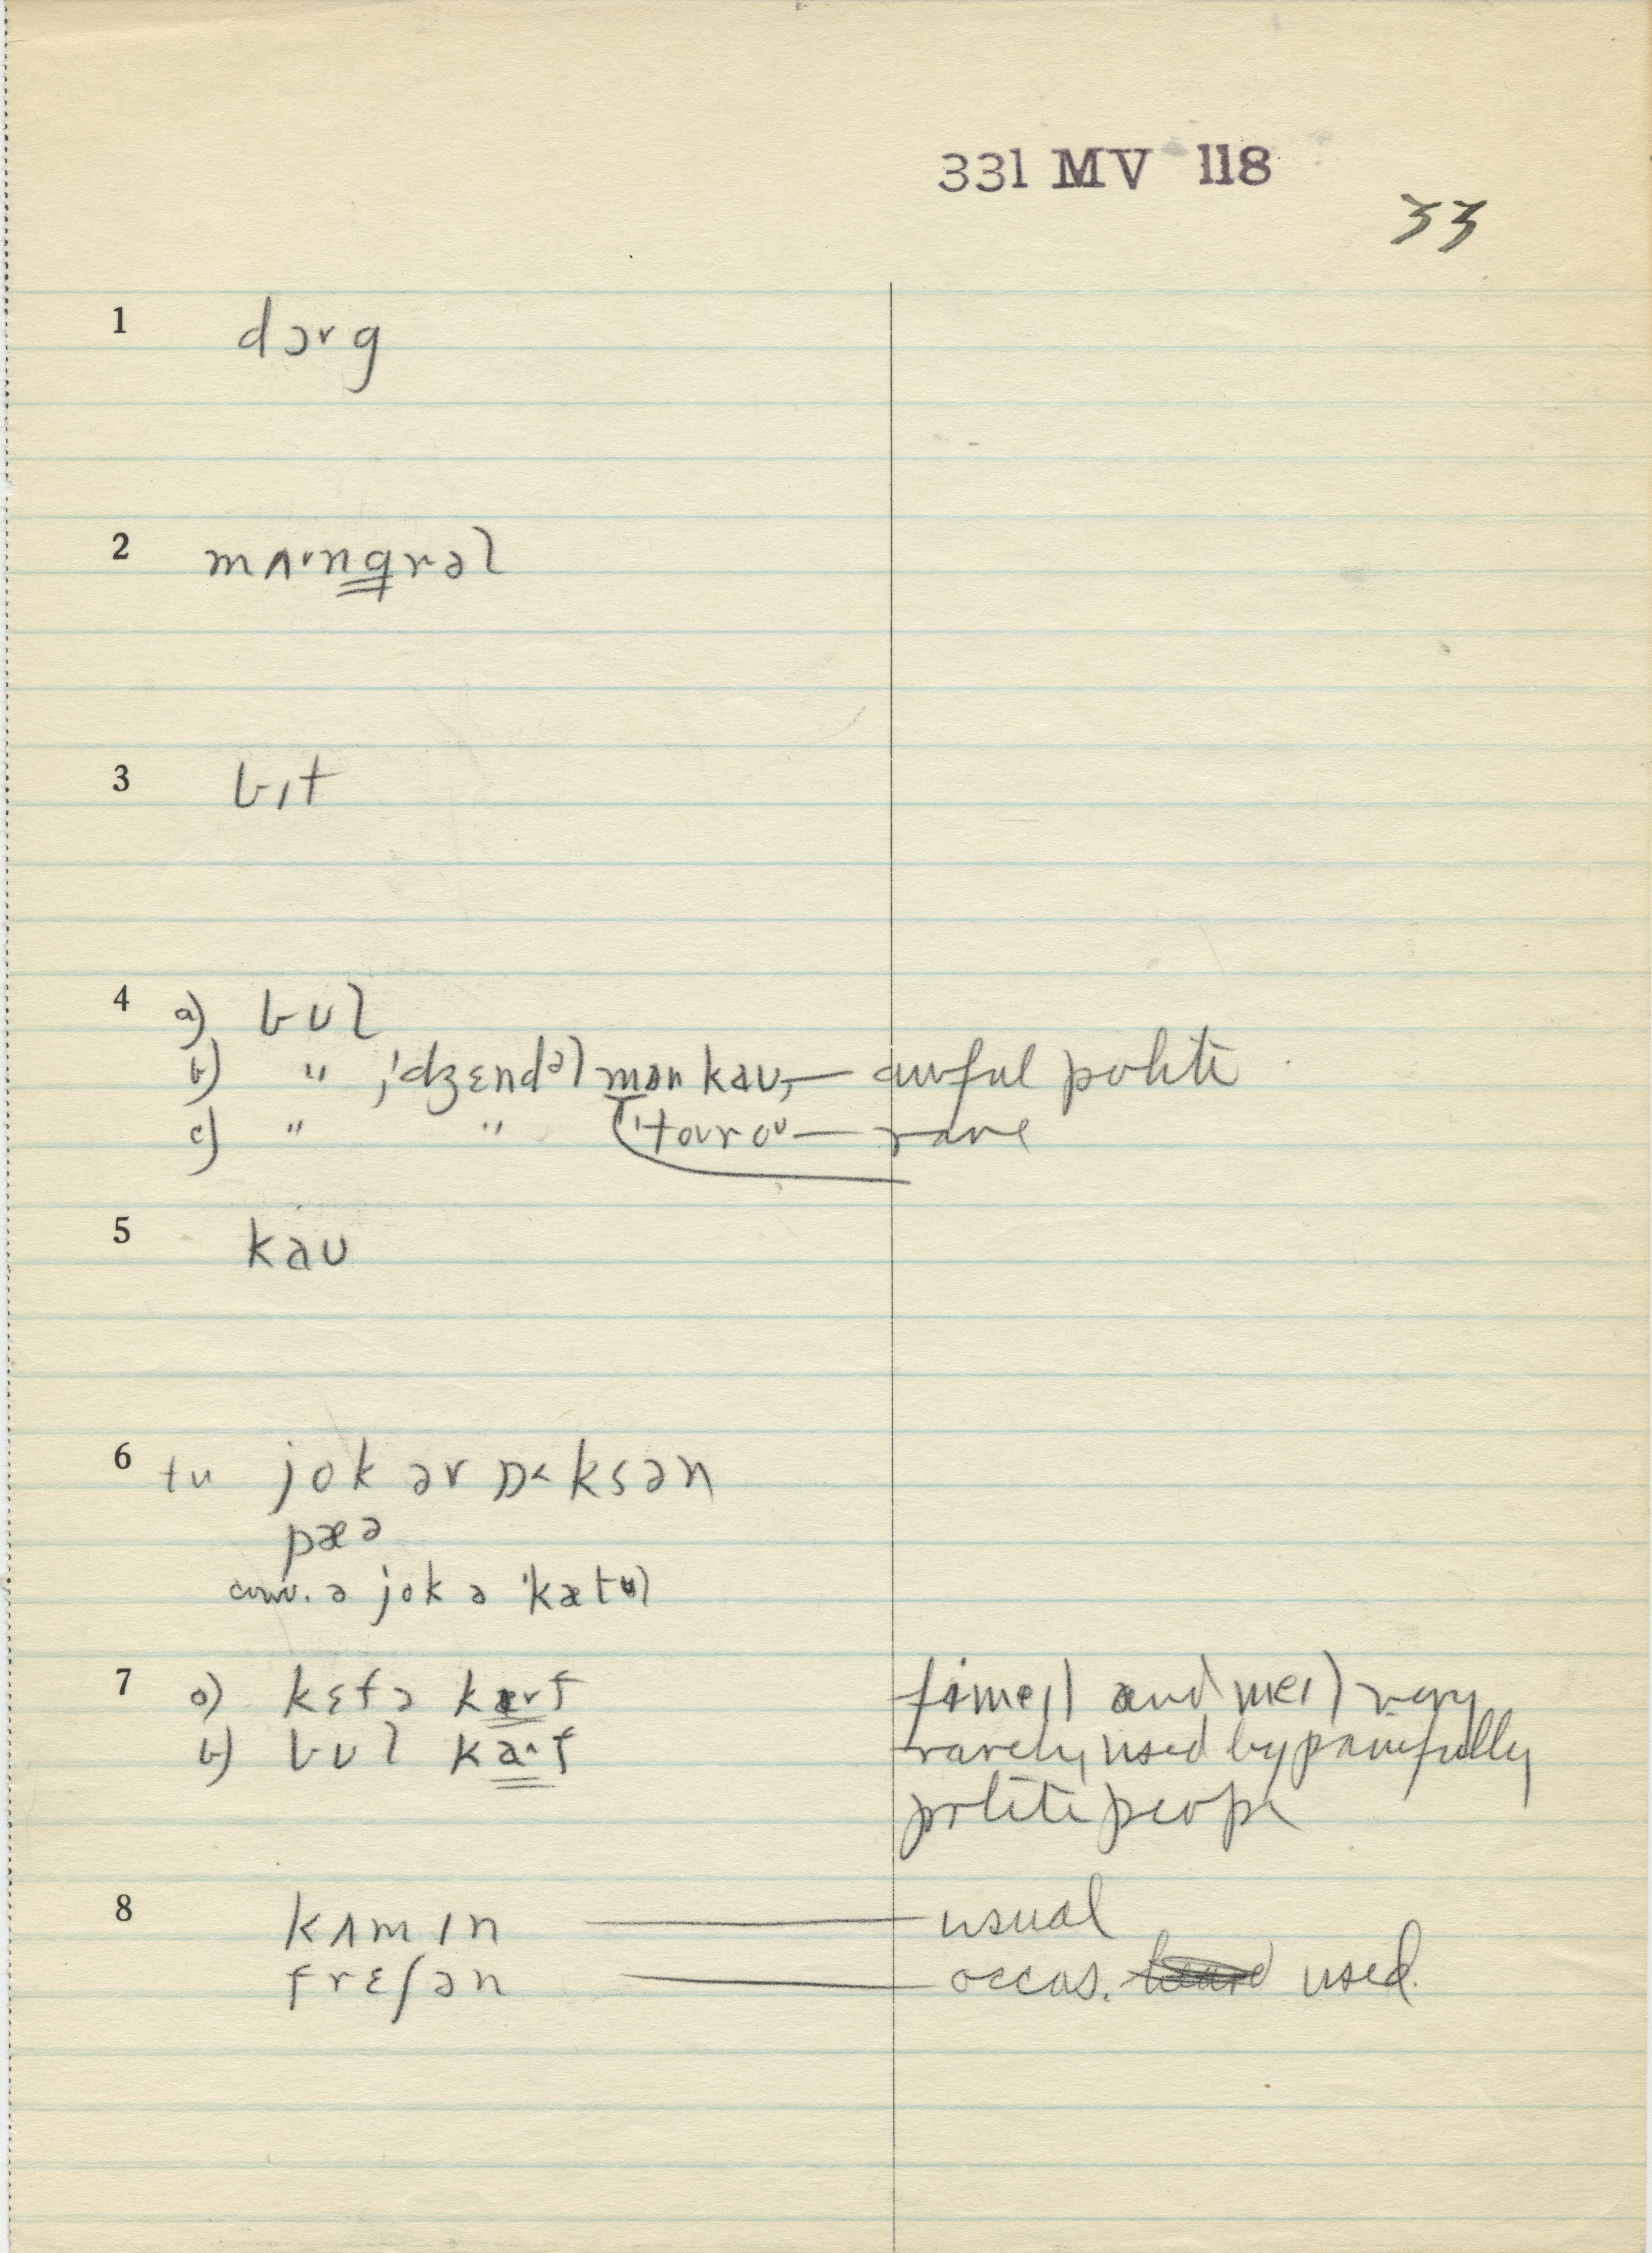 331 MV 118
33
1 dɔvg
2 mʌ·ngrəl
3 bɪt
4 a) bʊl
b) " ,'dʒɛndəl mən kaʊ, — awful polite
c) " " 'tourou — rare
5 kaʊ
6 tu jok ər ɒ˂ksən
pæə
conv. ə jok ə 'kætəl
7 a) kɛfə kævf
b) bʊl ka˄f
fimeıl and meıl very
rarely used by painfully
polite peopl
8 kʌmɪn — usual
frɛʃən — occas. heard used.